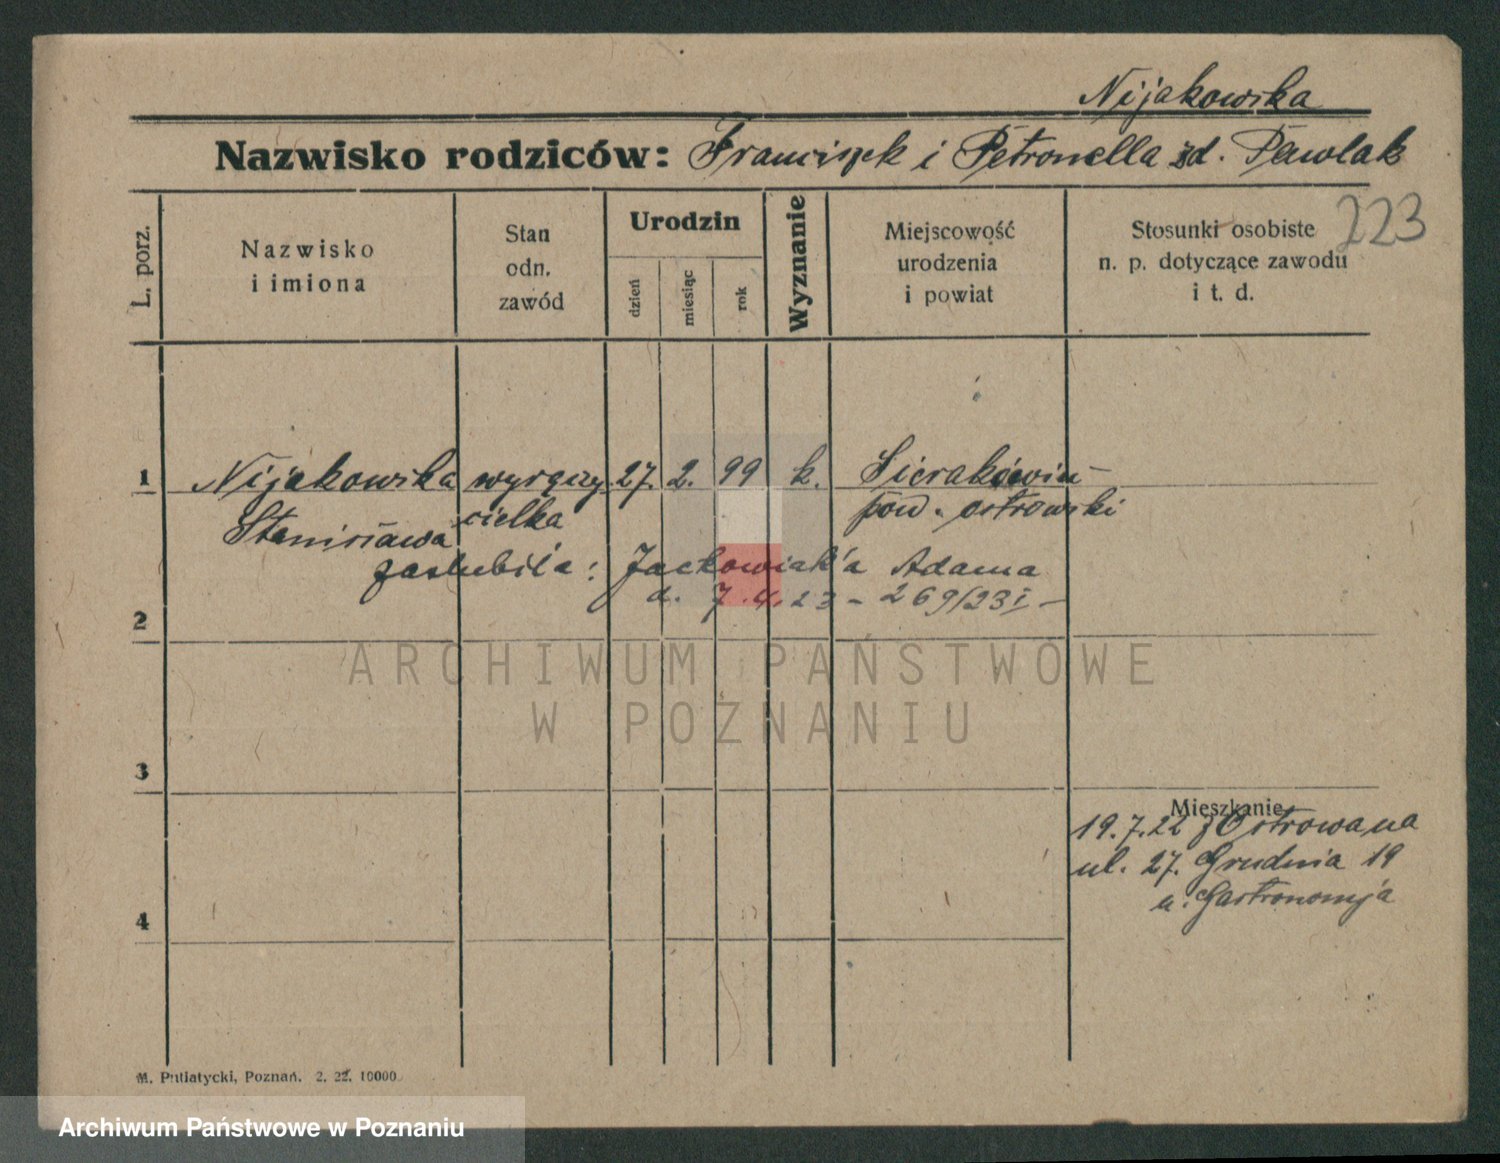 Nijakowska
Nazwisko rodziców: Franciszek i Petronella zd. Pawlak
223
L. porz.
Nazwisko
i imiona
Stan
odn.
zawód
Urodzin
dzień
miesiąc
rok
Wyznanie
Miejscowość
urodzenia
i powiat
Stosunki osobiste
n. p. dotyczące zawodu
i t. d.
1 Nijakowska wyręczy 27. 2. 99 k. Sierakowin
Stanisława cielka pow. ostrowski
zaślubiła: Jackowiak'a Adama
d. 7.4.23 - 269/23 I -
2
ARCHIWUM PAŃSTWOWE
W POZNANIU
3
Mieszkanie
19.7.22 z Ostrowa na
ul. 27. Grudnia 19
u. Gastronomja
4
M. Putiatycki, Poznań. 2. 22. 10000
Archiwum Państwowe w Poznaniu